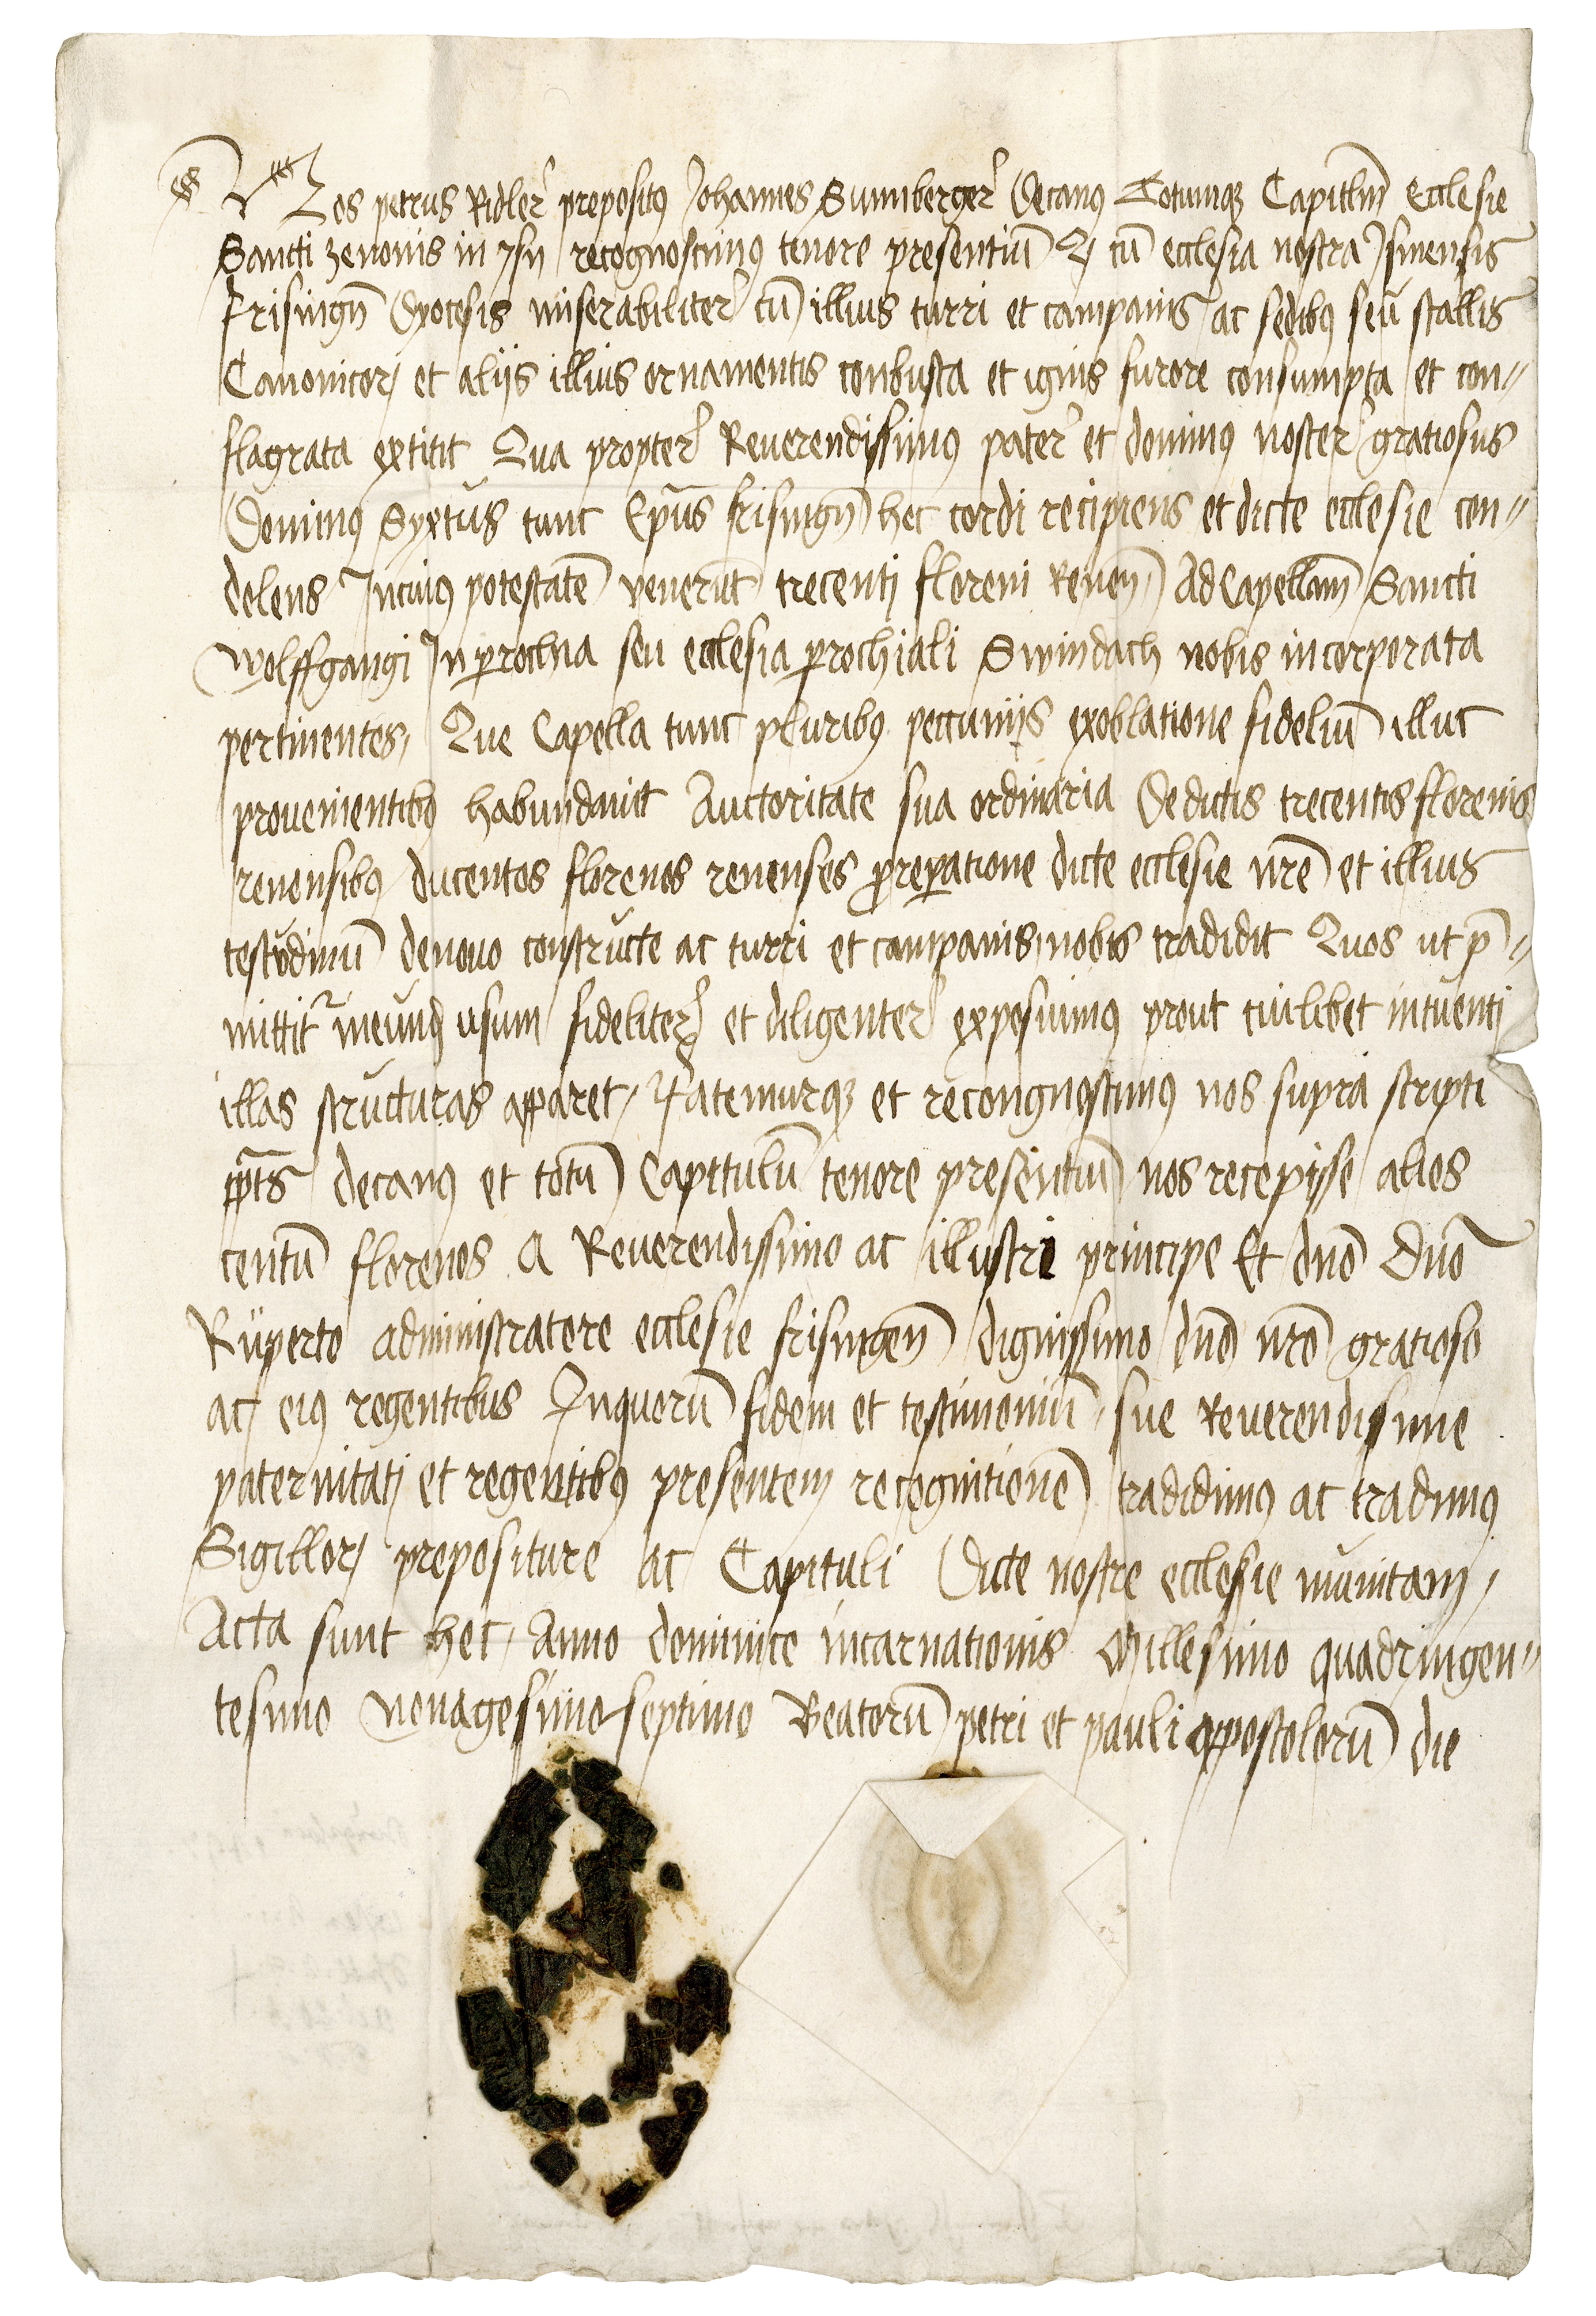 Nos petrus Ridler prepositus Johannes Sunnberger Decanus Totumque Capitlm Ecclesie
Sancti zenonis in ysn recognoscimus tenore presentiū Q cū ecclesia nostra Isinensis
frisingn̄ Dyocesis miserabiliter cū illius turri et campanis ac sedibus seu stallis
Canonicor et aliis illius ornamentis conbusta et ignis furore consumpta et con=
flagrata extitit Qua propter Reverendissimus pater et dominus noster gratiosus
Dominus Syxtus tunc Ep̄us frisingn̄ hec cordi recipiens et dicte ecclesie con=
dolens In cuius potestatē venerūt trecenti floreni Renen̄ Ad Capellam Sancti
Wolffgangi In parochia seu ecclesia parochiali Swindach nobis incorporata
pertinentes, Que Capella tunc pluribus peccuniis ex oblatione fideliū illuc
provenientibus habundavit Auctoritate sua ordinaria De dictis trecentis florenis
renensibus ducentos florenos renenses pro reparatione dicte ecclesie nr̄e et illius
testudinū de novo constructe ac turri et campanis nobis tradidit Quos ut p̄=
mittit in eund usum fideliter et diligenter exposuimus prout cuilibet intuenti
illas structuras apparet, Fatemurque et recongnoscimus nos supra scripti
pp̄ts decanus et totū Capitulū tenore presentiū nos recepisse alios
centū florenos A Reverendissimo ac illustri principe Et dn̄o Dn̄o
Rüperto administratore ecclesie frisingen̄ dignissimo dn̄o nr̄o gratioso
ac eius regentibus In quorū fidem et testimoniū sue Reverendissime
paternitati et regentibus presentem recognitionē tradidimus ac tradimus
Sigillor prepositure ac Capituli Dicte nostre ecclesie munitam,
Acta sunt hec, Anno dominice incarnationis Millesimo quadringen=
tesimo Nonagesimo septimo Beatorū petri et pauli appostolorū die